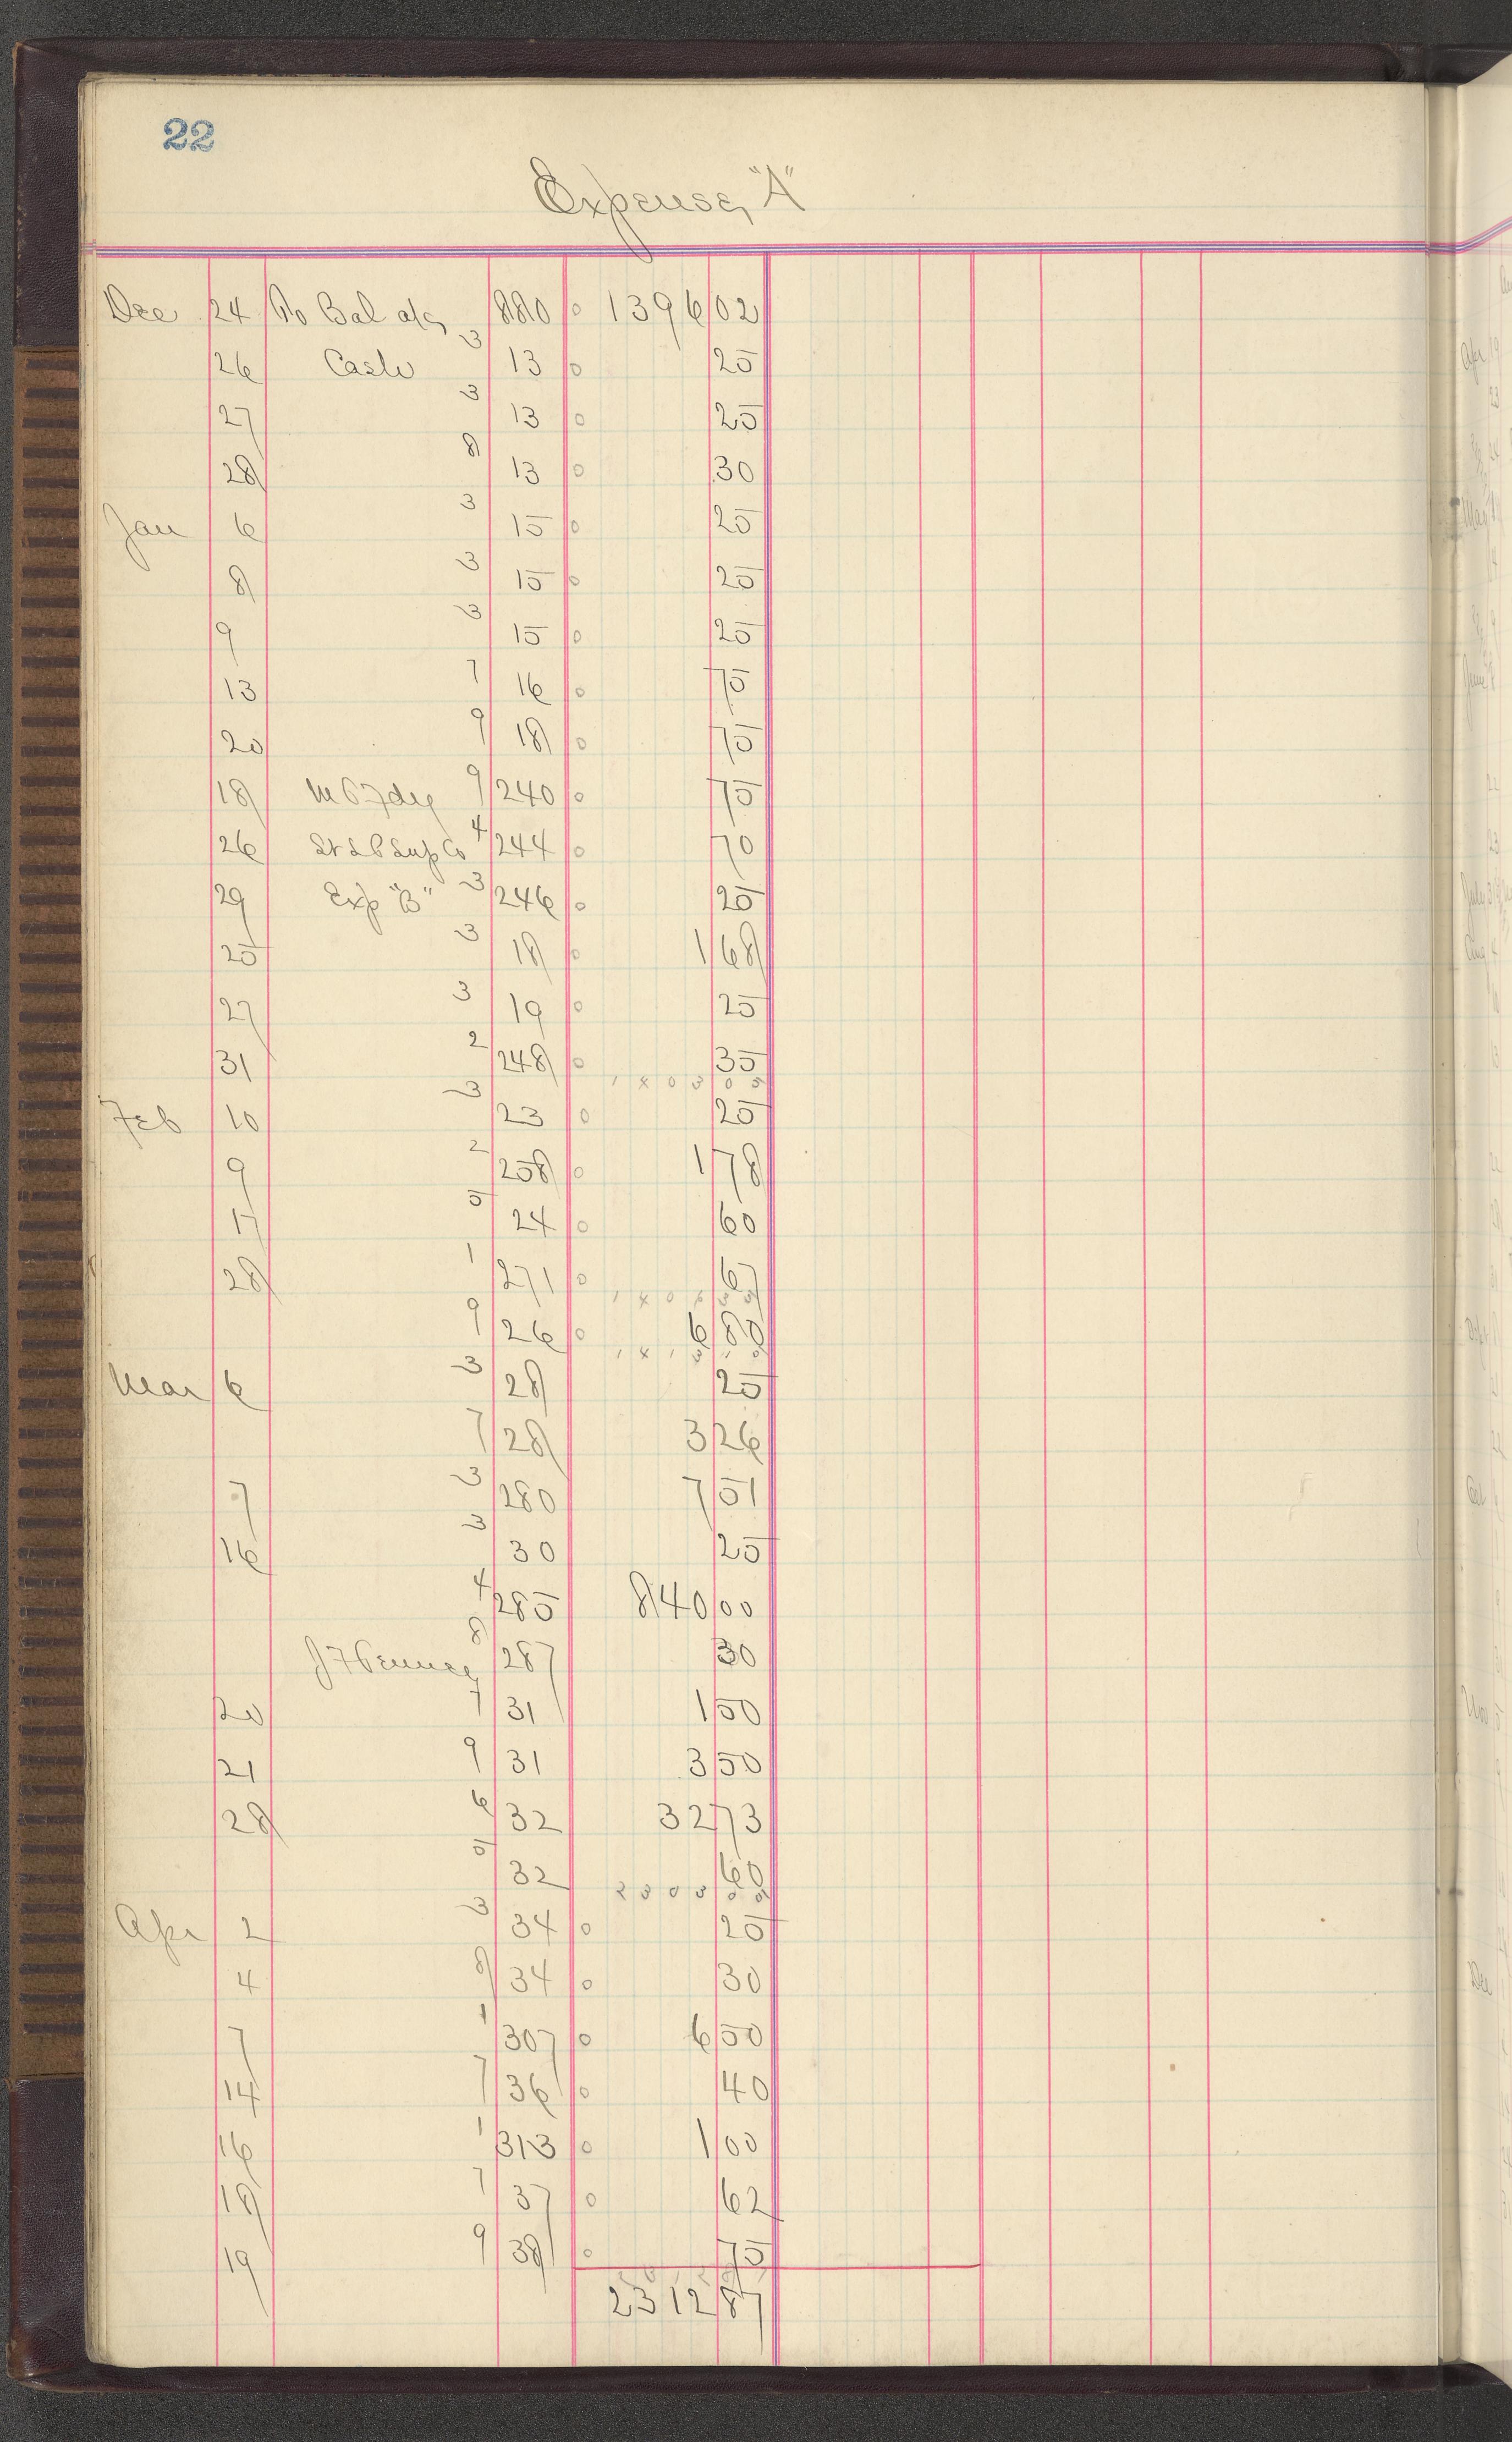 22
Expense, "A"
Dec 24 To Bal a/c 880 0 1396 02
26 Cash 3 13 0 25
27 3 13 0 25
28 8 13 0 30
Jan 6 3 15 0 25
8 3 15 0 25
9 3 15 0 25
13 7 16 0 75
20 9 18 0 75
18 9 240 0 75
26 Sup Co 4 244 0 70
29 Exp "B" 3 246 0 25
25 3 18 0 1 68
27 3 19 0 25
31 2 248 0 35
Feb 10 3 23 0 25
9 2 258 0 1 78
17 5 24 0 60
28 1 271 0 67
9 26 0 6 80
Mar 6 3 28 25
7 28 3 26
7 3 280 7 51
16 3 30 25
4 285 840 00
8 287 30
20 7 31 1 50
21 9 31 3 50
28 6 32 32 73
5 32 60
Apr 2 3 34 0 25
4 8 34 0 30
7 1 307 0 6 50
14 7 36 0 40
16 1 313 0 1 00
18 7 37 0 62
19 9 38 0 75
2312 87